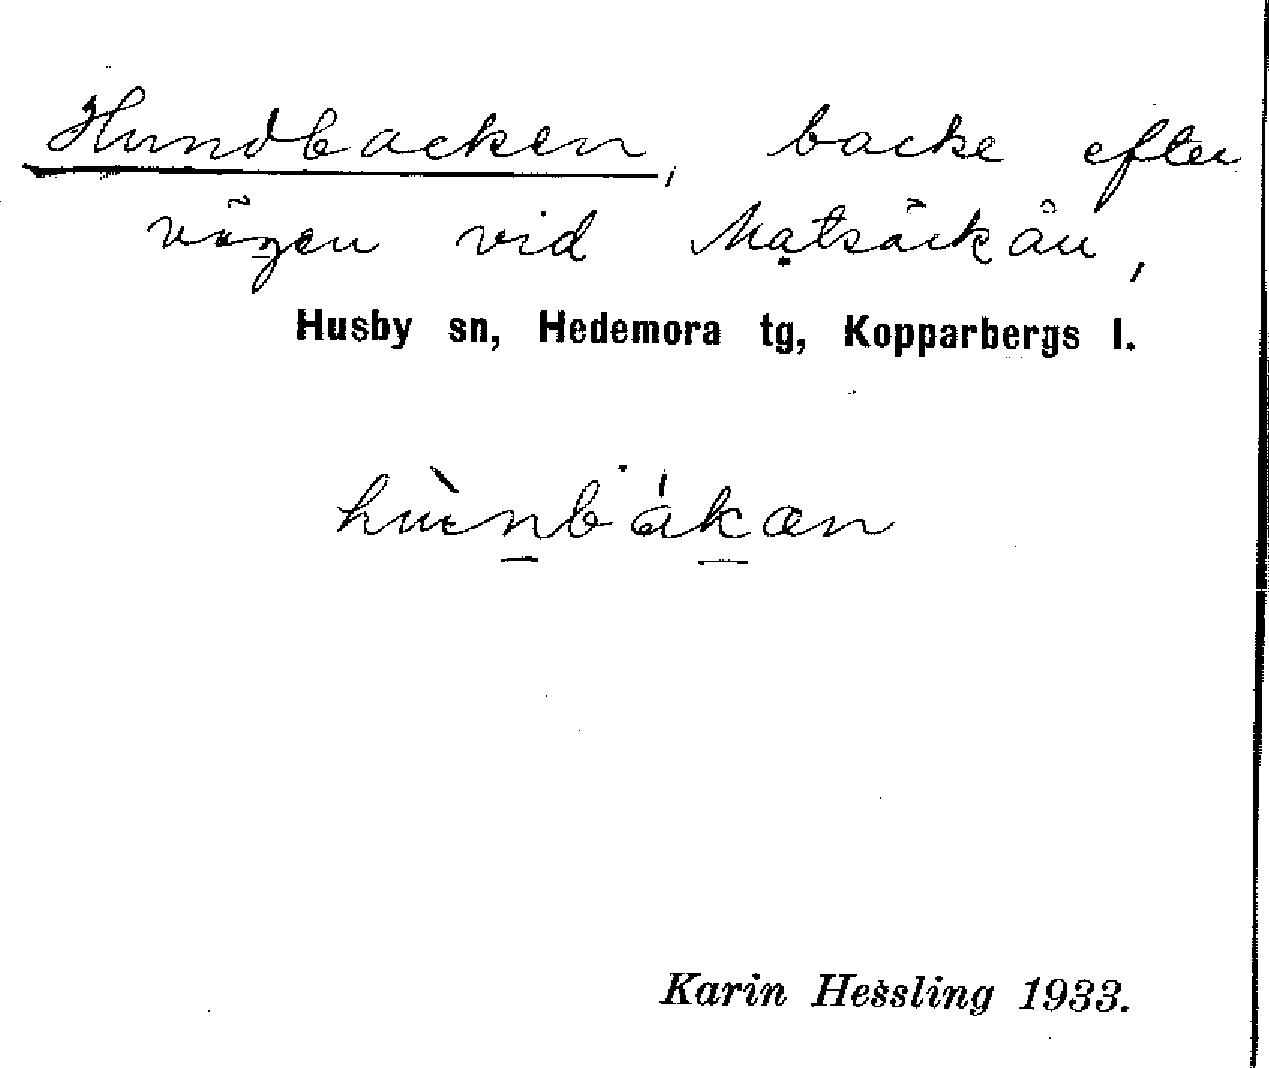 Hundbacken, backe efter
vägen vid Matsäckån,
Husby sn, Hedemora tg, Kopparbergs l.
hùnbákæn
Karin Hessling 1933.